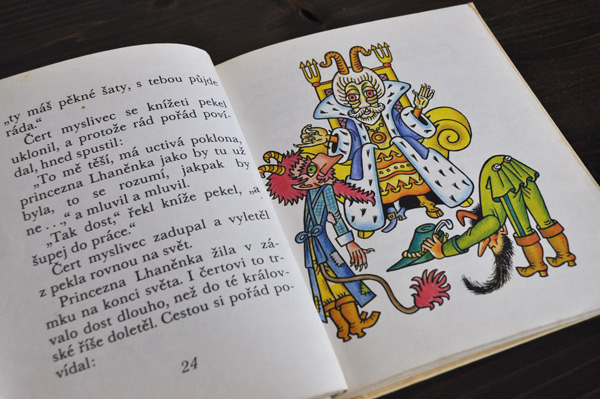 „ty máš pěkné šaty, s tebou půjde
ráda.“
Čert myslivec se knížeti pekel
uklonil, a protože rád pořád poví-
dal, hned spustil:
„To mě těší, má uctivá poklona,
princezna Lhaněnka jako by tu už
byla, to se rozumí, jakpak by
ne . . .,“ a mluvil a mluvil.
„Tak dost,“ řekl kníže pekel, „a
šupej do práce.“
Čert myslivec zadupal a vyletěl
z pekla rovnou na svět.
Princezna Lhaněnka žila v zá-
mku na konci světa. I čertovi to tr-
valo dost dlouho, než do té králov-
ské říše doletěl. Cestou si pořád po-
vídal:
24